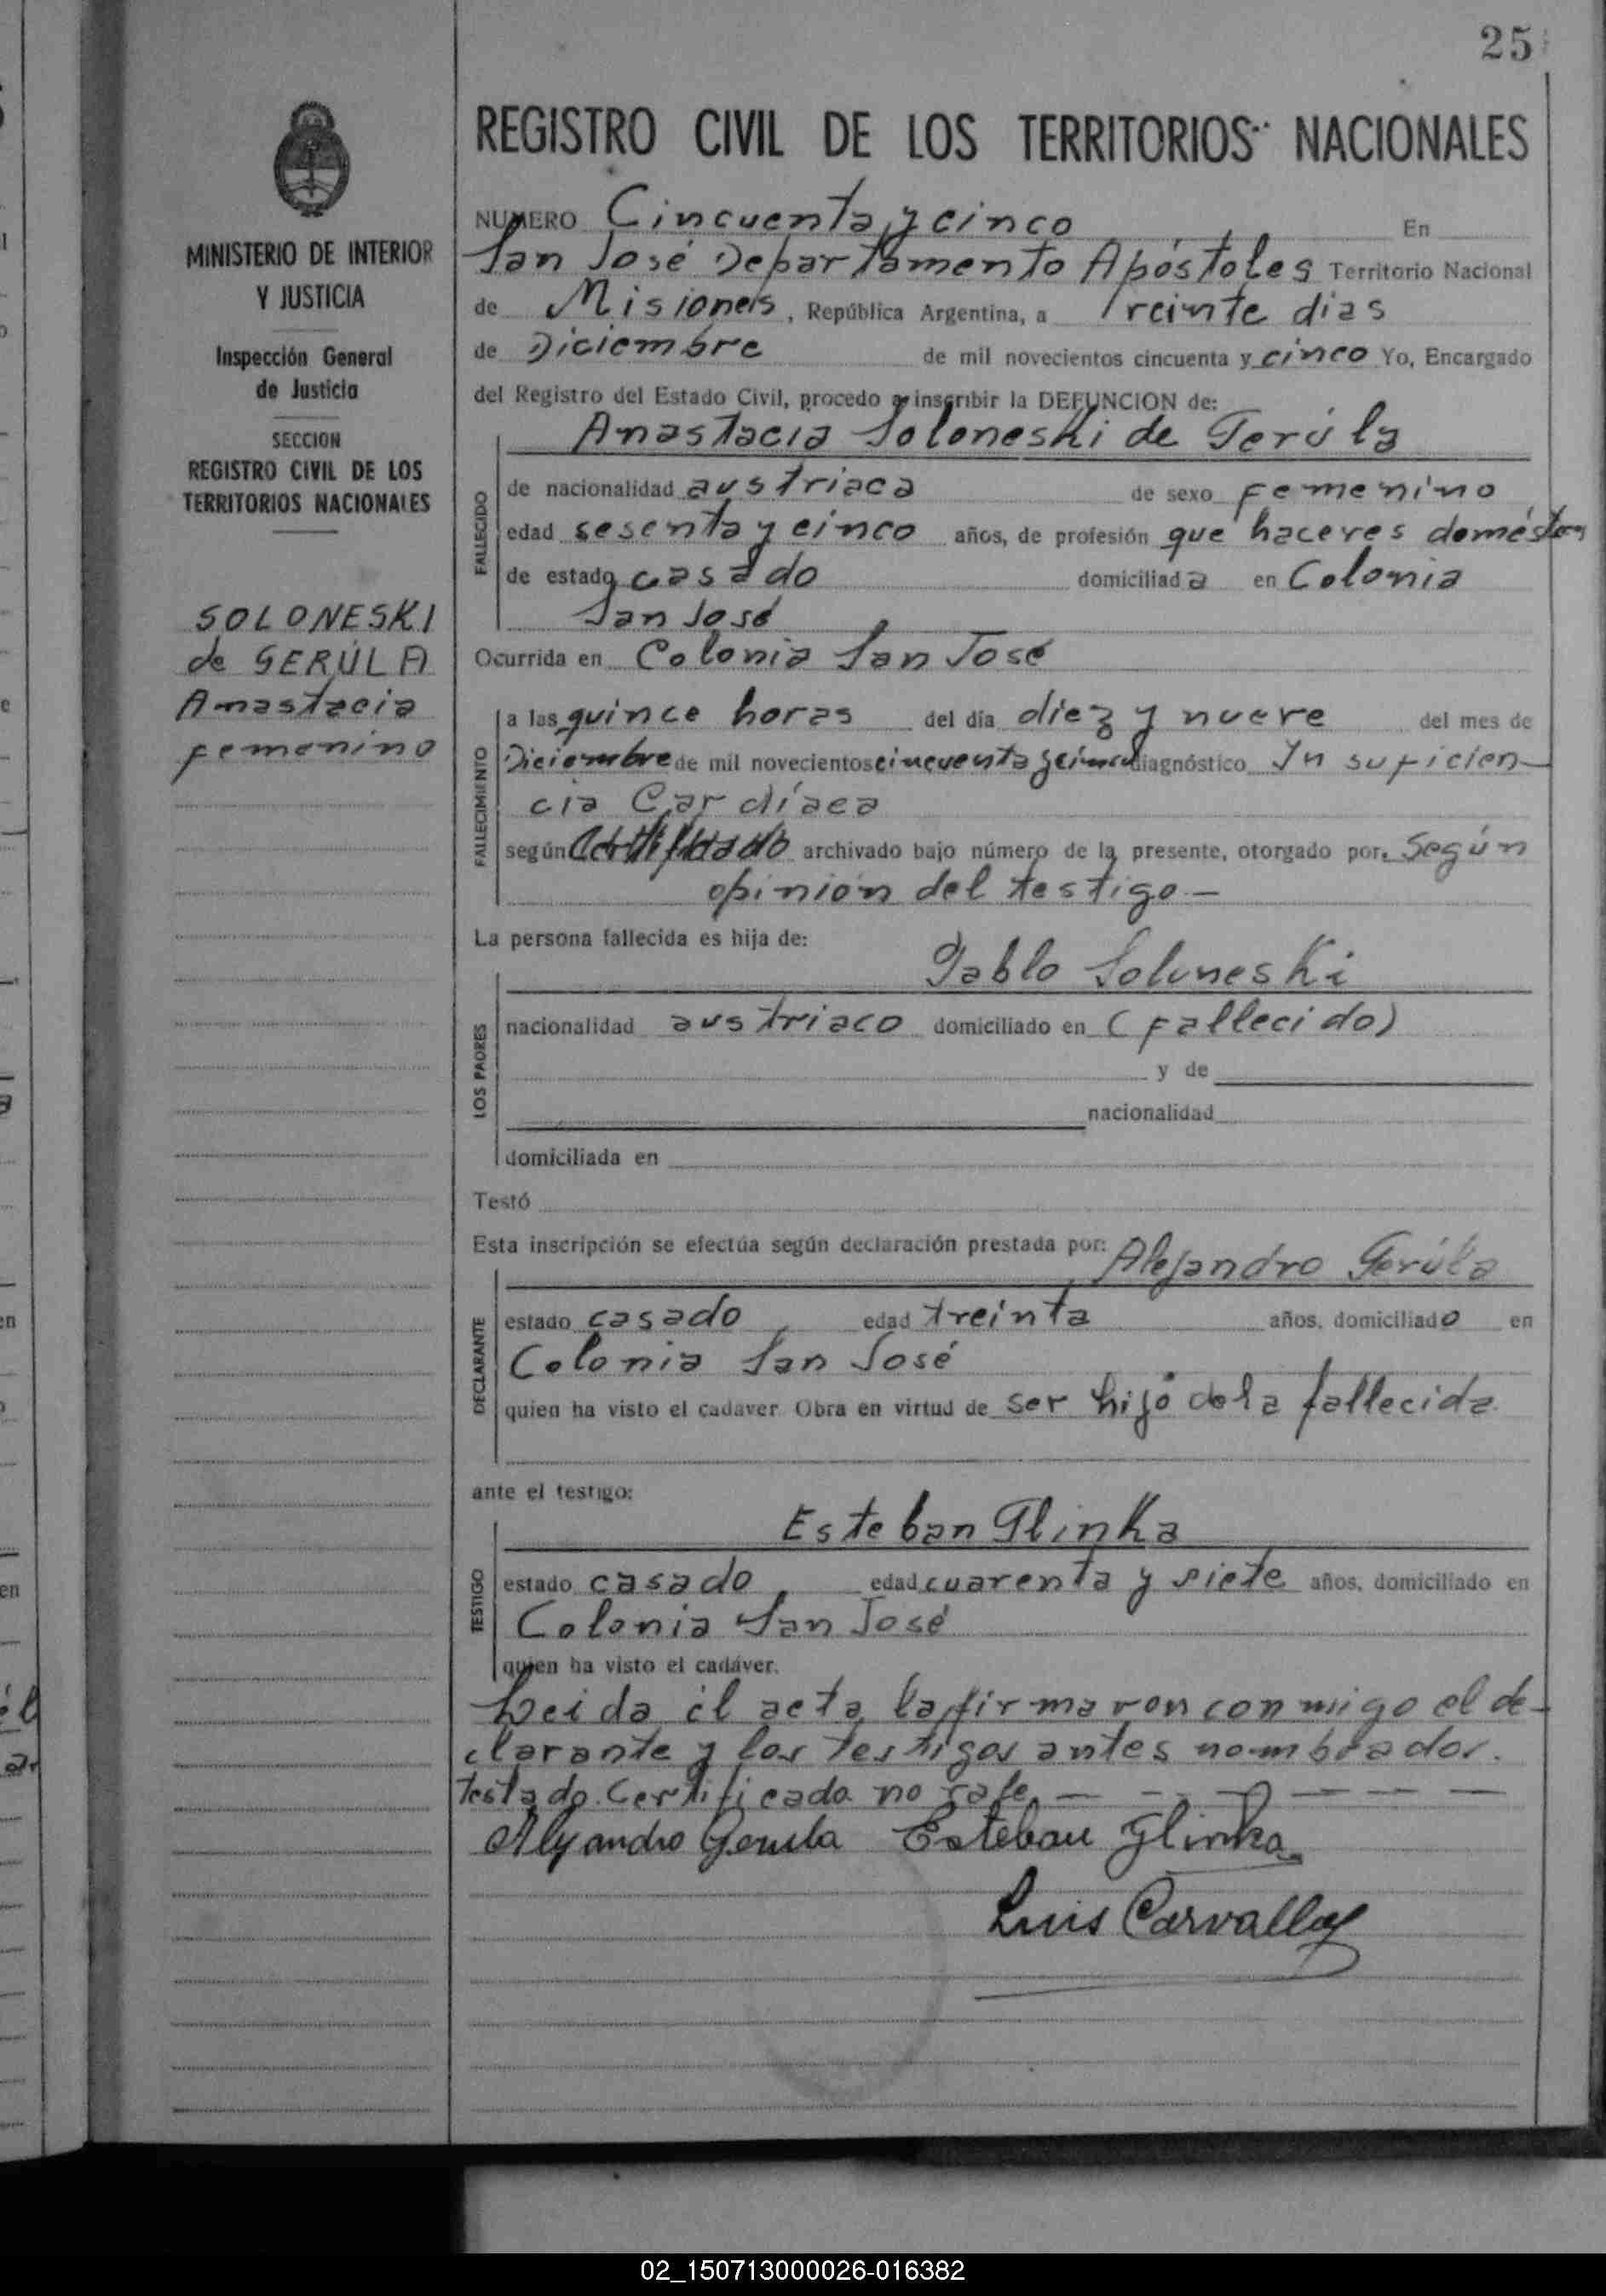 25
REGISTRO CIVIL DE LOS TERRITORIOS NACIONALES
MINISTERIO DE INTERIOR
Y JUSTICIA
Inspección General
de Justicia
SECCION
REGISTRO CIVIL DE LOS
TERRITORIOS NACIONALES
SOLONESKI
de GERÚLA
Anastacia
femenino
NUMERO Cincuenta y cinco En
San José Departamento Apóstoles Territorio Nacional
de Misiones, República Argentina, a treinte dias
de Diciembre de mil novecientos cincuenta y cinco Yo, Encargado
del Registro del Estado Civil, procedo a inscribir la DEFUNCION de:
Anastacia Soloneski de Gerúla
FALLECIDO
de nacionalidad austriaca de sexo femenino
edad sesenta y cinco años, de profesión que haceres domésticos
de estado casado domiciliada en Colonia
San José
Ocurrida en Colonia San José
FALLECIMIENTO
a las quince horas del día diez y nueve del mes de
Diciembre de mil novecientos cincuenta y cinco diagnóstico In suficien-
cia Cardíaca
según Certificado archivado bajo número de la presente, otorgado por. Según
opinión del testigo -
La persona fallecida es hija de:
Pablo Soloneski
LOS PADRES
nacionalidad austriaco domiciliado en (fallecido)
y de
nacionalidad
domiciliada en
Testó
Esta inscripción se efectúa según declaración prestada por: Alejandro Gerúla
DECLARANTE
estado casado edad treinta años, domiciliado en
Colonia San José
quien ha visto el cadaver. Obra en virtud de ser hijo de la fallecida.
ante el testigo:
Esteban Glinka
TESTIGO
estado casado, edad cuarenta y siete años, domiciliado en
Colonia San José
quien ha visto el cadáver.
Leida el acta, la firmaron conmigo el de-
clarante y los testigos antes nombrados.
Testado. Certificado no vale — — — — — —
Alejandro Gerula Esteban Glinka
Luis Carvallo
02_150713000026-016382